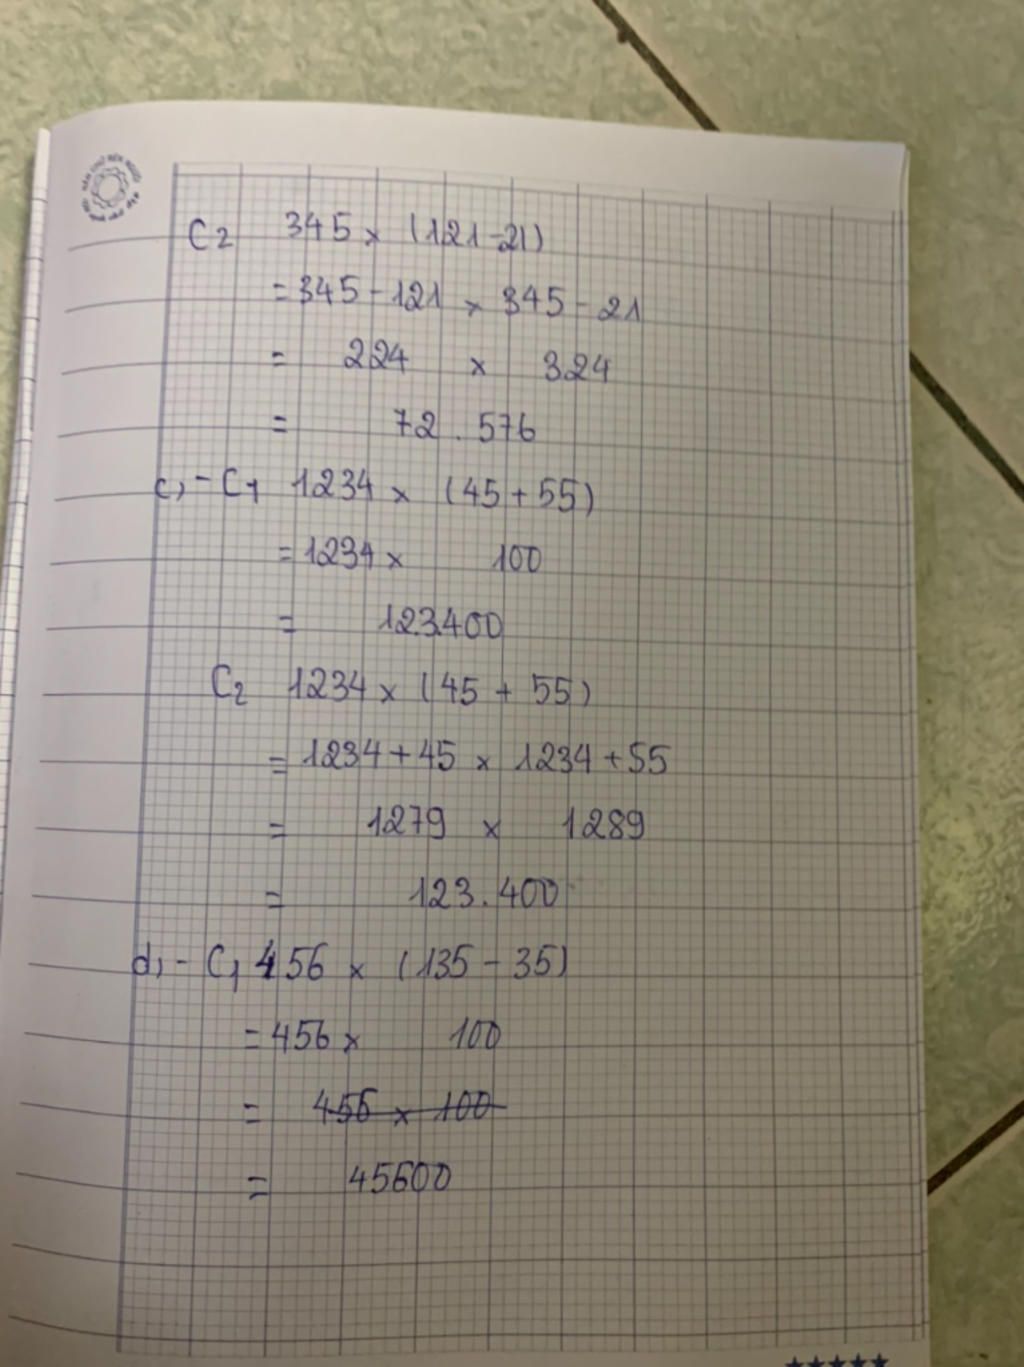 C2 345 x (121-21)
= 345 - 121 x 345 - 21
= 224 x 324
= 72.576
c, - C1 1234 x (45 + 55)
= 1234 x 100
= 123400
C2 1234 x (45 + 55)
= 1234 + 45 x 1234 + 55
= 1279 x 1289
= 123.400
d, - C1 456 x (135 - 35)
= 456 x 100
= 456 x 100
= 45600